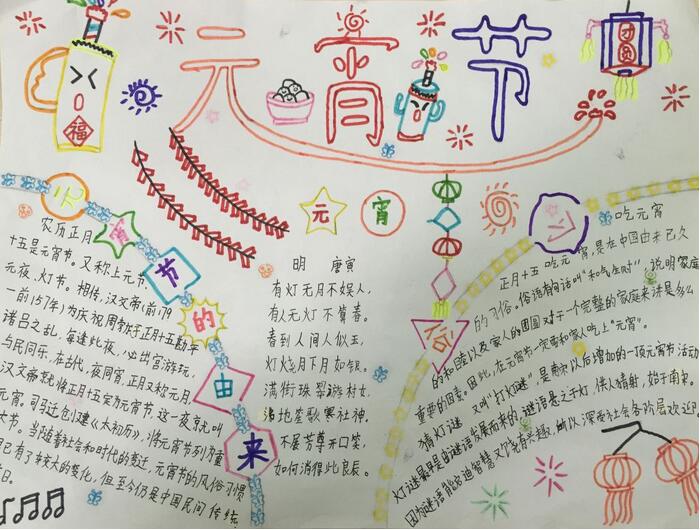 元宵节
福
团圆
元宵节的由来
农历正月
十五是元宵节。又称上元节,
元夜、灯节。相传,汉文帝(前179
—前157年)为庆祝周勃于正月十五勘平
诸吕之乱,每逢此夜,必出宫游玩,
与民同乐,在古代,夜同宵,正月又称元月
汉文帝就将正月十五定为元宵节,这一夜就叫
元宵。司马迁创建《太初历》,将元宵节列为重
大节。当随着社会和时代的变迁,元宵节的风俗习惯
已有了较大的变化,但至今仍是中国民间传统
日。
元宵
明 唐寅
有灯无月不娱人,
有月无灯不算春。
春到人间人似玉,
灯烧月下月如银。
满街珠翠游村女,
沸地笙歌赛社神。
不展芳尊开口笑,
如何消得此良辰。
俗
吃元宵
正月十五吃元宵,是在中国由来已久
的习俗。俗语有句话叫"和气生财",说明家庭
的和睦以及家人的团圆对于一个完整的家庭来讲是多么
重要的因素。因此,在元宵节一定要和家人吃上"元宵"。
猜灯谜 又叫"打灯谜",是南宋以后增加的一项元宵节活动
灯谜最早是由谜语发展而来的,谜语悬之于灯,供人猜射,始于南宋,
因为谜语能启迪智慧又饶有兴趣,所以深受社会各阶层欢迎